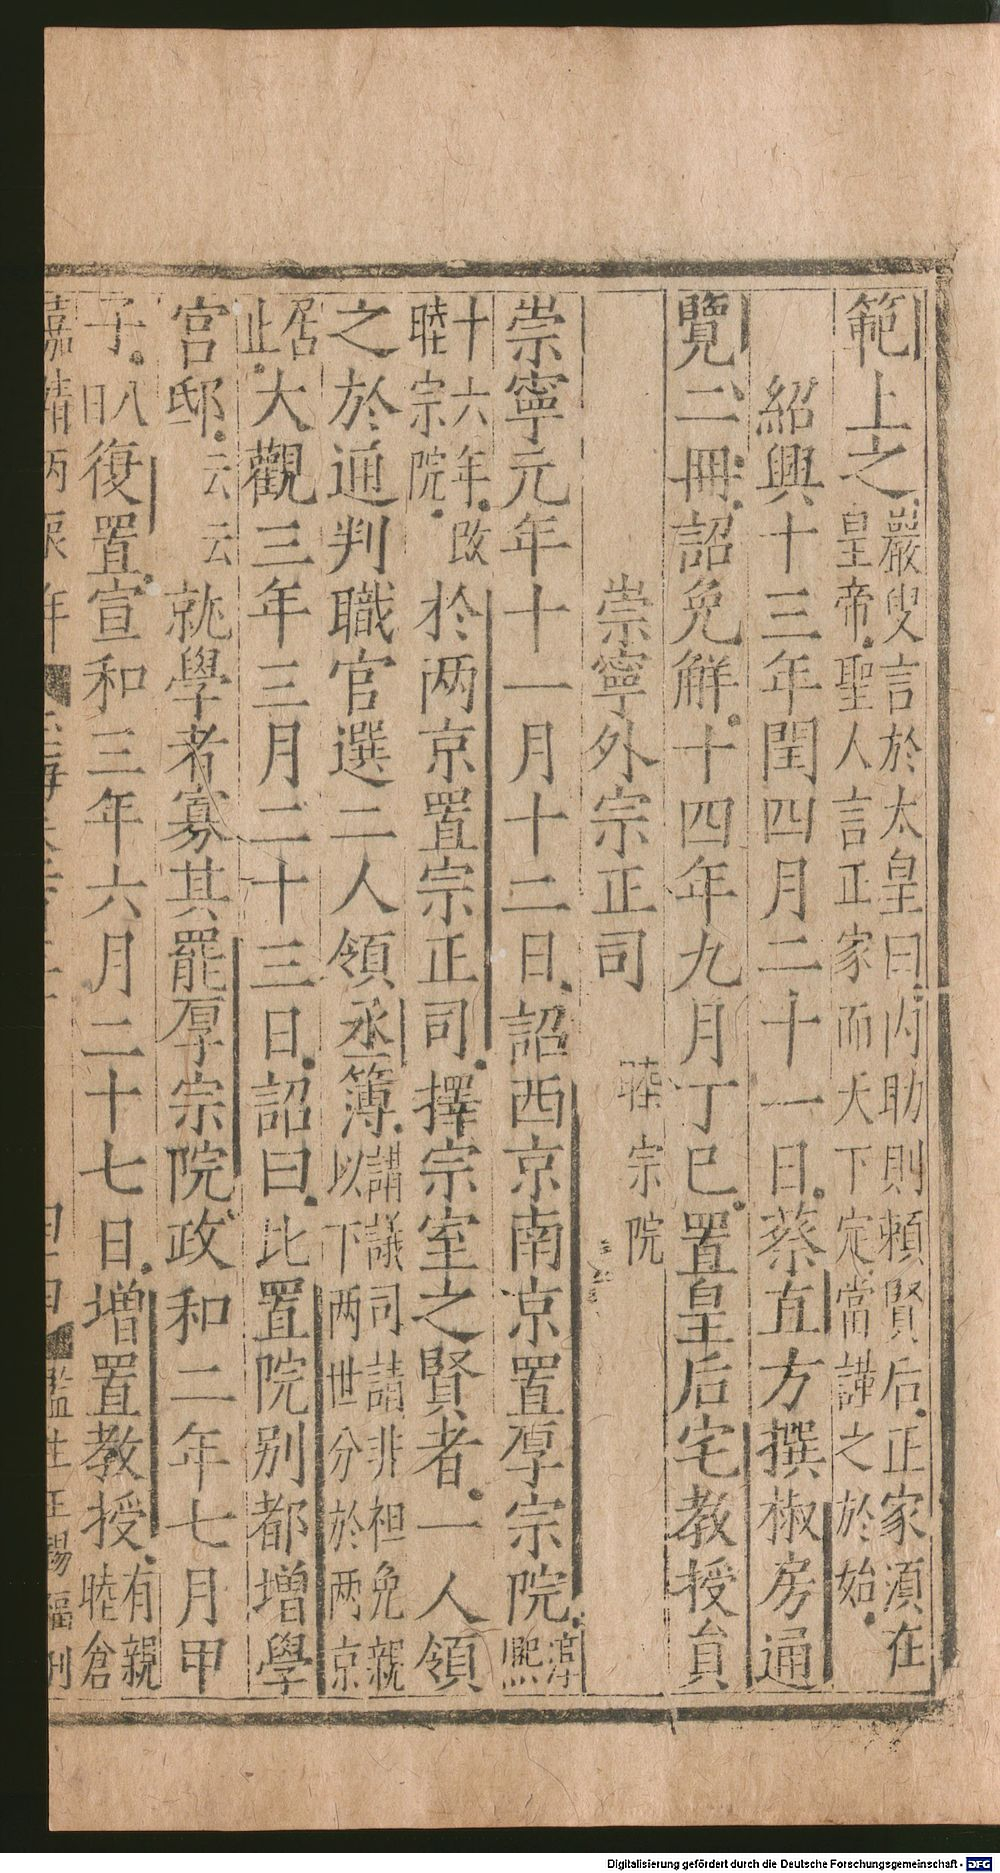 範上之巖叟言於太皇曰内助則賴賢后正家湏在
皇帝聖人言正家而天下定當謹之於始
紹興十三年閏四月二十一日蔡直方撰椒房通
覽二冊詔免解十四年九月丁巳置皇后宅教授員
崇寧外宗正司 睦宗院
崇寧元年十一月十二日詔西京南京置厚宗院淳熙
十六年改睦宗院於两京置宗正司擇宗室之賢者一人領
之於通判職官選二人領丞簿講議司請非袒免親以下两世分於两京
居止大觀三年三月二十三日詔曰比置院别都增學
宮邸云云就學者寡其罷厚宗院政和二年七月甲
子八日復置宣和三年六月二十七日增置教授有親睦倉
嘉靖丙辰年 監生王錫 刊
Digitalisierung gefördert durch die Deutsche Forschungsgemeinschaft - DFG